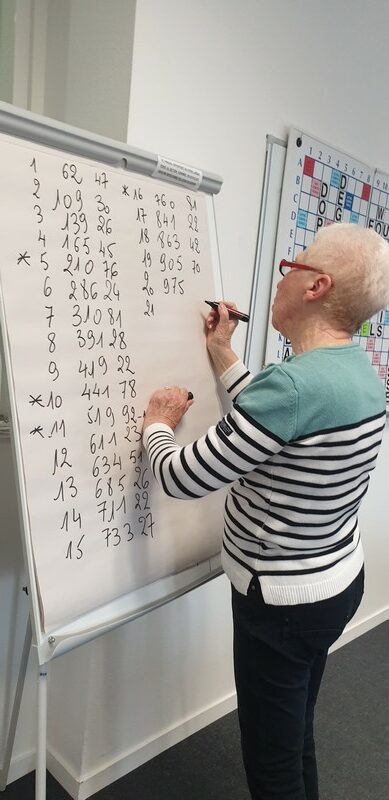 1 62 47
2 109 30
3 139 26
4 165 45
* 5 210 76
6 286 24
7 310 81
8 391 28
9 419 22
* 10 441 78
519 92
* 11 611 23
12 634 51
13 685 26
14 711 22
15 733 27
* 16 760 81
17 841 22
18 863 42
19 905 70
20 975
21
1 2 3 4 5 6 7 8
A
B
C
D
E
F
G
H